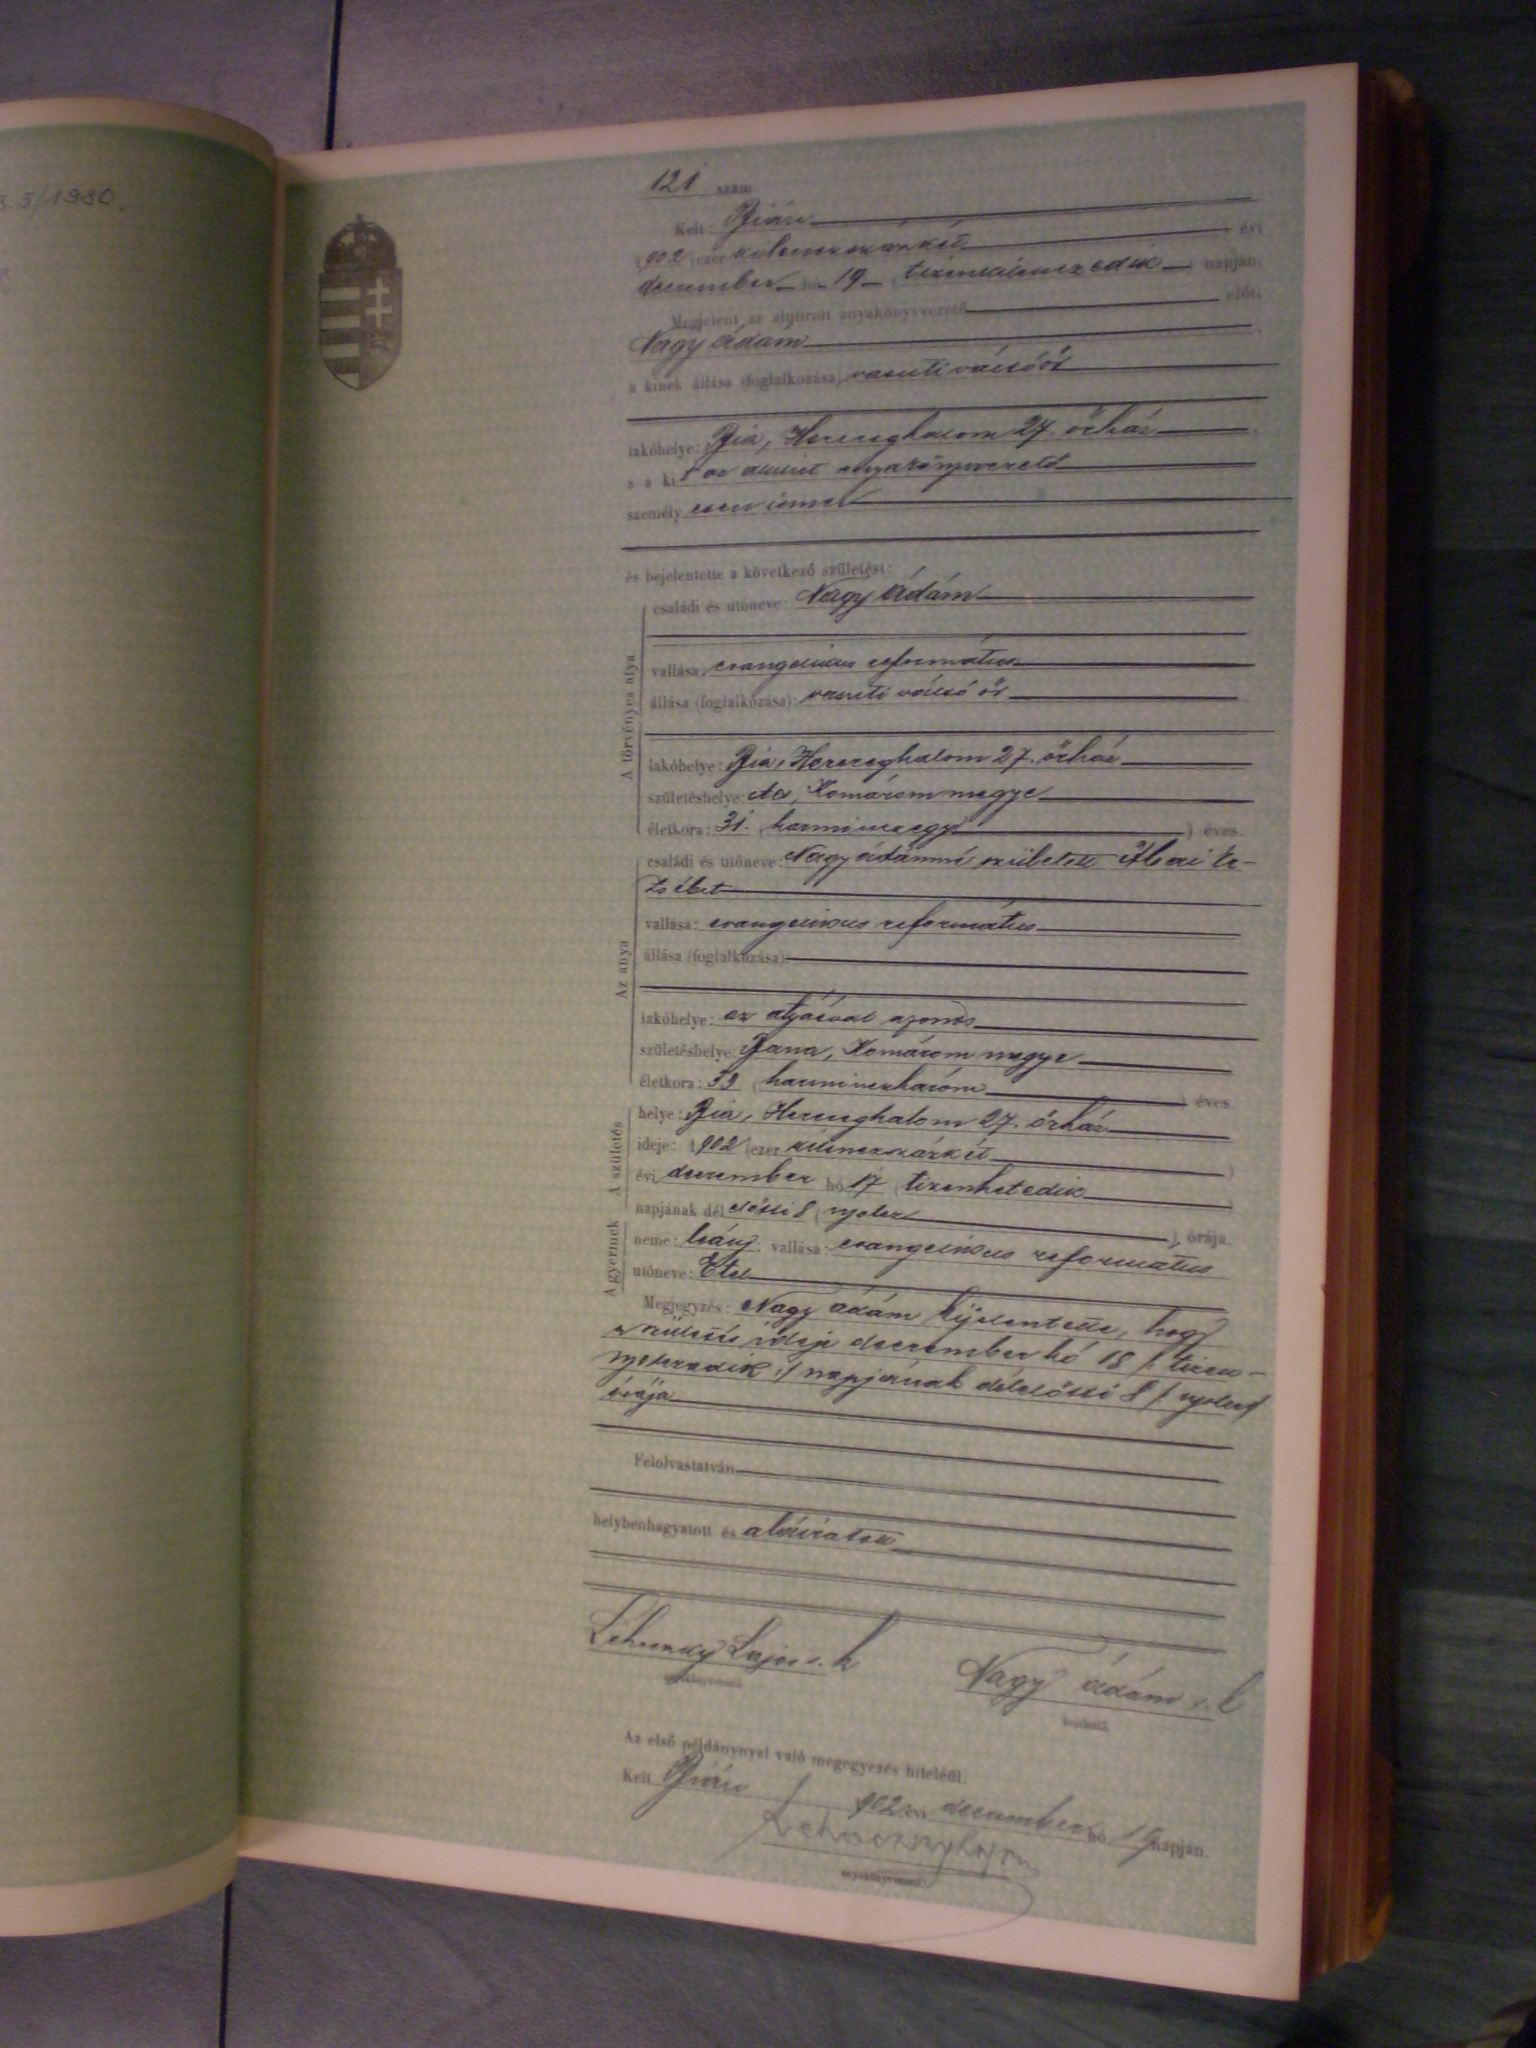 5/1980.
121 szám
Kelt: Bián
1902 (ezer kilenczszázkét) évi
december hó 19 (tizenkilenczedik) napján.
Megjelent az alulirott anyakönyvvezető előtt
Nagy Ádám
a kinek állása (foglalkozása) vasuti váltóőr
lakóhelye: Bia, Herceghalom 27. őrház
s a kit az alulirt anyakönyvvezető
személyesen ismer
és bejelentette a következő születést:
A törvényes atya
családi és utóneve: Nagy Ádám
vallása: evangelikus református
állása (foglalkozása): vasuti váltó őr
lakóhelye: Bia, Herceghalom 27. őrház
születéshelye: Ács, Komárom megye
életkora: 31. (harminczegy) éves.
Az anya
családi és utóneve: Nagy Ádámné született
zsébet
vallása: evangelikus református
állása (foglalkozása):
lakóhelye: az atyáéval azonos
születéshelye: Bana, Komárom megye
életkora: 33 (harminczhárom) éves.
A születés
helye: Bia, Herceghalom 27. őrház
ideje: 1902 (ezer kilenczszázkét)
évi december hó 17 (tizenhetedik)
napjának délelőtti 8 (nyolcz) órája.
A gyermek
neme: leány, vallása: evangelikus református
utóneve: Etel
Megjegyzés: Nagy Ádám kijelentette, hogy
a születés ideje december hó 18 /: tizen-
nyolczadik :/ napjának délelőtti 8 /: nyolcz/
órája
Felolvastatván
helybenhagyatott és aláiratott
Lajos s. k
anyakönyvvezető
Nagy Ádám s. k
bejelentő
Az első példánynyal való megegyezés hiteléül.
Kelt Bián 1902 évi december hó 19 napján.
anyakönyvvezető